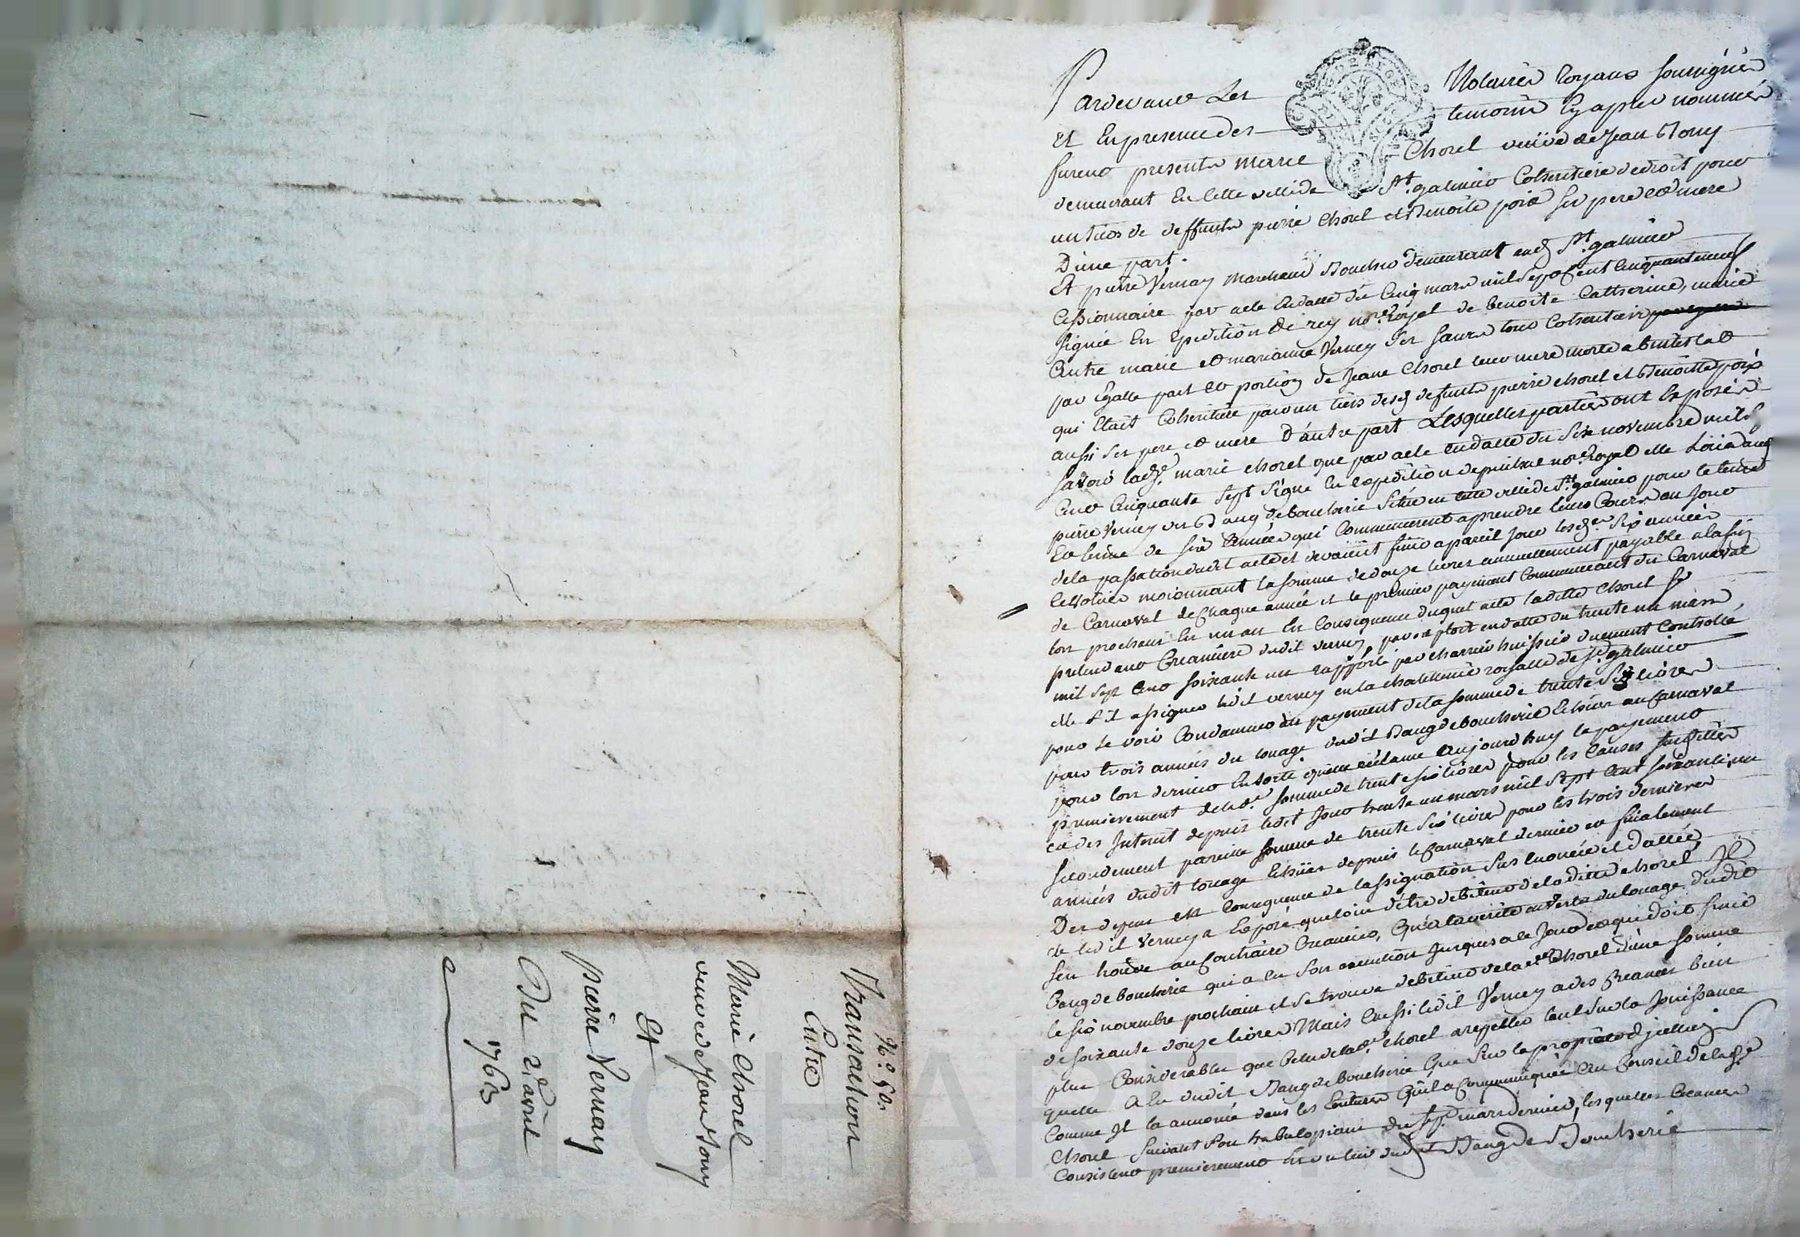 Pardevant Les Notaires Royaux soussignés
et En presence des temoins Cy apres nommés
furent presents marie Chorel veuve de Jean Stony
demeurant En Cette ville de St. galmier Coheritiere de droit pour
un tiers de deffunts pierre Chorel et Benoite poix ses pere et mere
D'une part.
Et pierre Verney Marchand Boucher demeurant aud. St. galmier
Cessionnaire par acte En datte du Cinq mars mil Sept Cent Cinquante neuf
Signé En Expedition De rey nore. Royal de benoite Catherine, marie
autre marie et marianne Verney Ses Sœurs tous Coheritiers
par Egalle part et portion de Jeane Chorel leur mere morte abintestat
qui Etait Coheritiere pour un tiers desd. defunts pierre Chorel et Benoitte poix
aussi Ses pere et mere D'autre part Lesquelles parties ont Exposé
Savoir lade. marie Chorel que par acte En datte du Six novembre mil Sept
Cent Cinquante Sept Signé En expedition nore. Royal elle
pierre Verney un Banq de boucherie Scitué en cette ville de St. galmier pour le tems
Et terme de Six Années qui Commencerent a prendre leurs Cours au Jour
de la passation dudit acte et devaient finir a pareil Jour lesd. Six années
revolues moiennant la Somme de douze livres annuellement payable a la fin
de Carnaval de Chaque année et le premier payement Commencant du Carnaval
lors prochain En un an En Consequence duquel acte ladite Chorel Se
pretendant Creanciere dudit verney, par exploit en datte du trente un mars
mil Sept Cent Soixante un rapporté par Charrier huissier duement Controllé
elle fit assigner ledit verney en la Chatellenie royalle de St. galmier
pour Se voir Condamner au payement de la Somme de trente Six livres
pour trois années du louage dudit Bang de Boucherie Echües au Carnaval
pour lors dernier Ensorte qu'elle réclame Aujourd'huy le payement
premierement de lade. Somme de trente Six livres pour les Causes
et des Interets depuis ledit Jour trente un mars mil Sept Cent Soixante un
Secondement pareille Somme de trente Six livres pour les trois dernieres
années dudit louage Echües depuis le Carnaval dernier et finalement
Des depens En Consequence de lassignation Sus Enoncée et dattée
et ledit Verney a Exposé que loin d'être debiteur de la ditte Chorel, Il
Sen trouve au Contraire Creancier, Qu'a la verité En vertu du louage dudit
Bang de boucherie qui a Eu Son execution Jusques a ce Jour et qui doit finir
le Six novembre prochain il Se trouve debiteur de lade. Chorel d'une Somme
de Soixante douze livres Mais Aussi ledit Verney a des Creances bien
plus Considerables que Celle de lade. Chorel a repeller tant Sur la Jouissance
quelle A Eu dudit Bang de boucherie Que Sur la propriété d'jcelluy
Comme Il la annoncé dans les Ecritures Quil a Communiquées Au Conseil de lade.
Chorel Suivant Son du Sept mars dernier, lesquelles Creances
Consistent premierement En un tiers dudit Bang de Boucherie
No. 50.
Transaction
Entre
Marie Chorel
veuve de Jean Stony
Et
pierre Vernay
Du 2e. avril
1763